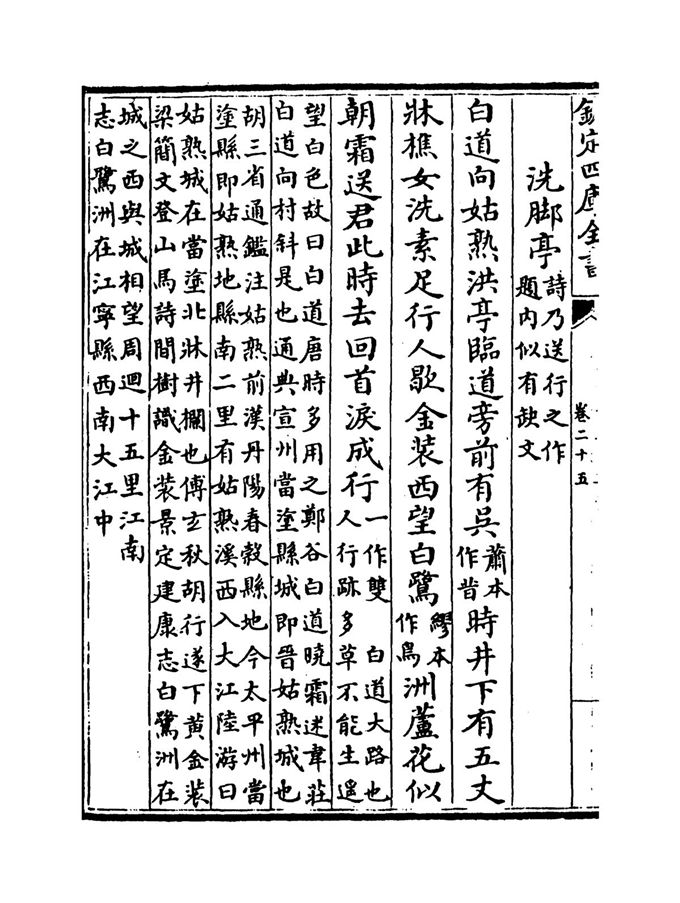 欽定四庫全書 卷二十五
洗脚亭 詩乃送行之作
題内似有缺文
白道向姑熟洪亭臨道旁前有吳 蕭本作昔 時井下有五丈
牀樵女洗素足行人歇金装西望白鷺 繆本作烏 洲蘆花似
朝霜送君此時去回首淚成行 一作雙 白道大路也
人行跡多草不能生遥
望白色故曰白道唐時多用之鄭谷白道曉霜迷韋莊
白道向村斜是也通典宣州當塗縣城即晉姑熟城也
胡三省通鑑注姑熟前漢丹陽春穀縣地今太平州當
塗縣即姑熟地縣南二里有姑熟溪西入大江陸游曰
姑熟城在當塗北牀井欄也傅玄秋胡行遂下黄金装
梁簡文登山馬詩間樹識金装景定建康志白鷺洲在
城之西與城相望周迴十五里江南
志白鷺洲在江寧縣西南大江中